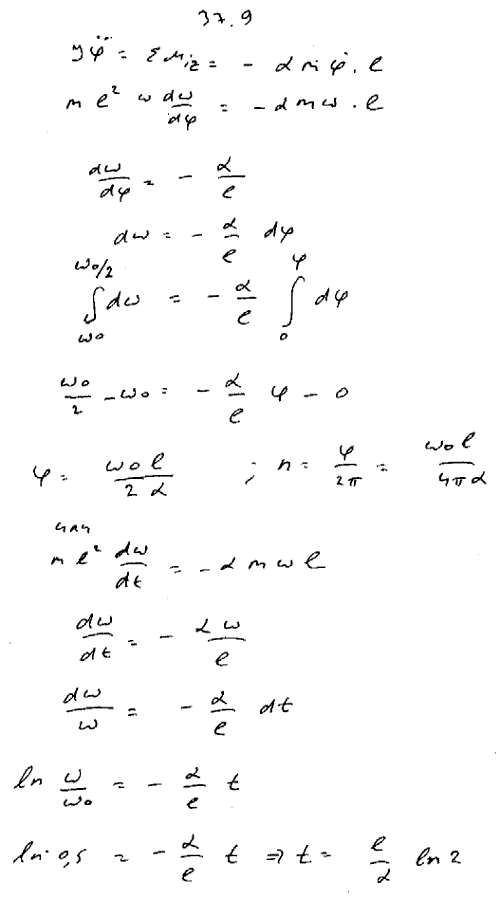 37.9
Jφ̈ = ΣM_iz = - αmφ̇·l
ml² ω dω/dφ = - αmω·l
dω/dφ = - α/l
dω = - α/l dφ
∫_{ω0}^{ω0/2} dω = - α/l ∫_0^φ dφ
ω0/2 - ω0 = - α/l φ - 0
φ = ω0 l / 2α ; n = φ/2π = ω0 l / 4πα
ml² dω/dt = - αmωl
dω/dt = - αω/l
dω/ω = - α/l dt
ln ω/ω0 = - α/l t
ln 0,5 = - α/l t ⇒ t = l/α ln 2